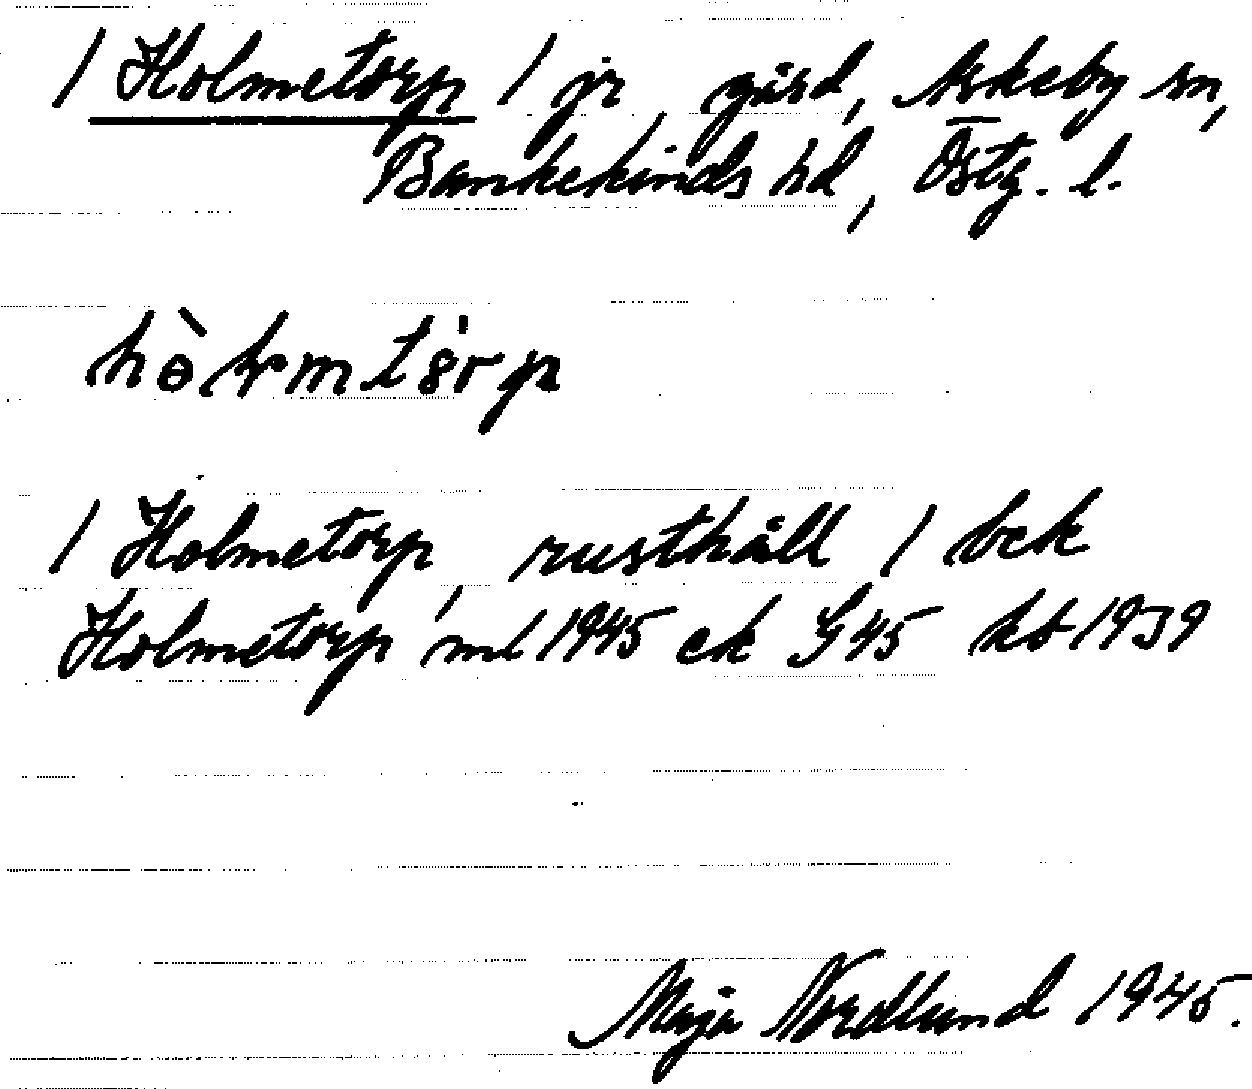 / Holmetorp / jr gård, Askeby sn,
Bankekinds hd, Östg. l.
/ Holmetorp, rusthåll / bek
Holmetorp / ml 1945 ek G45 kb 1939
Maja Nordlund 1945.